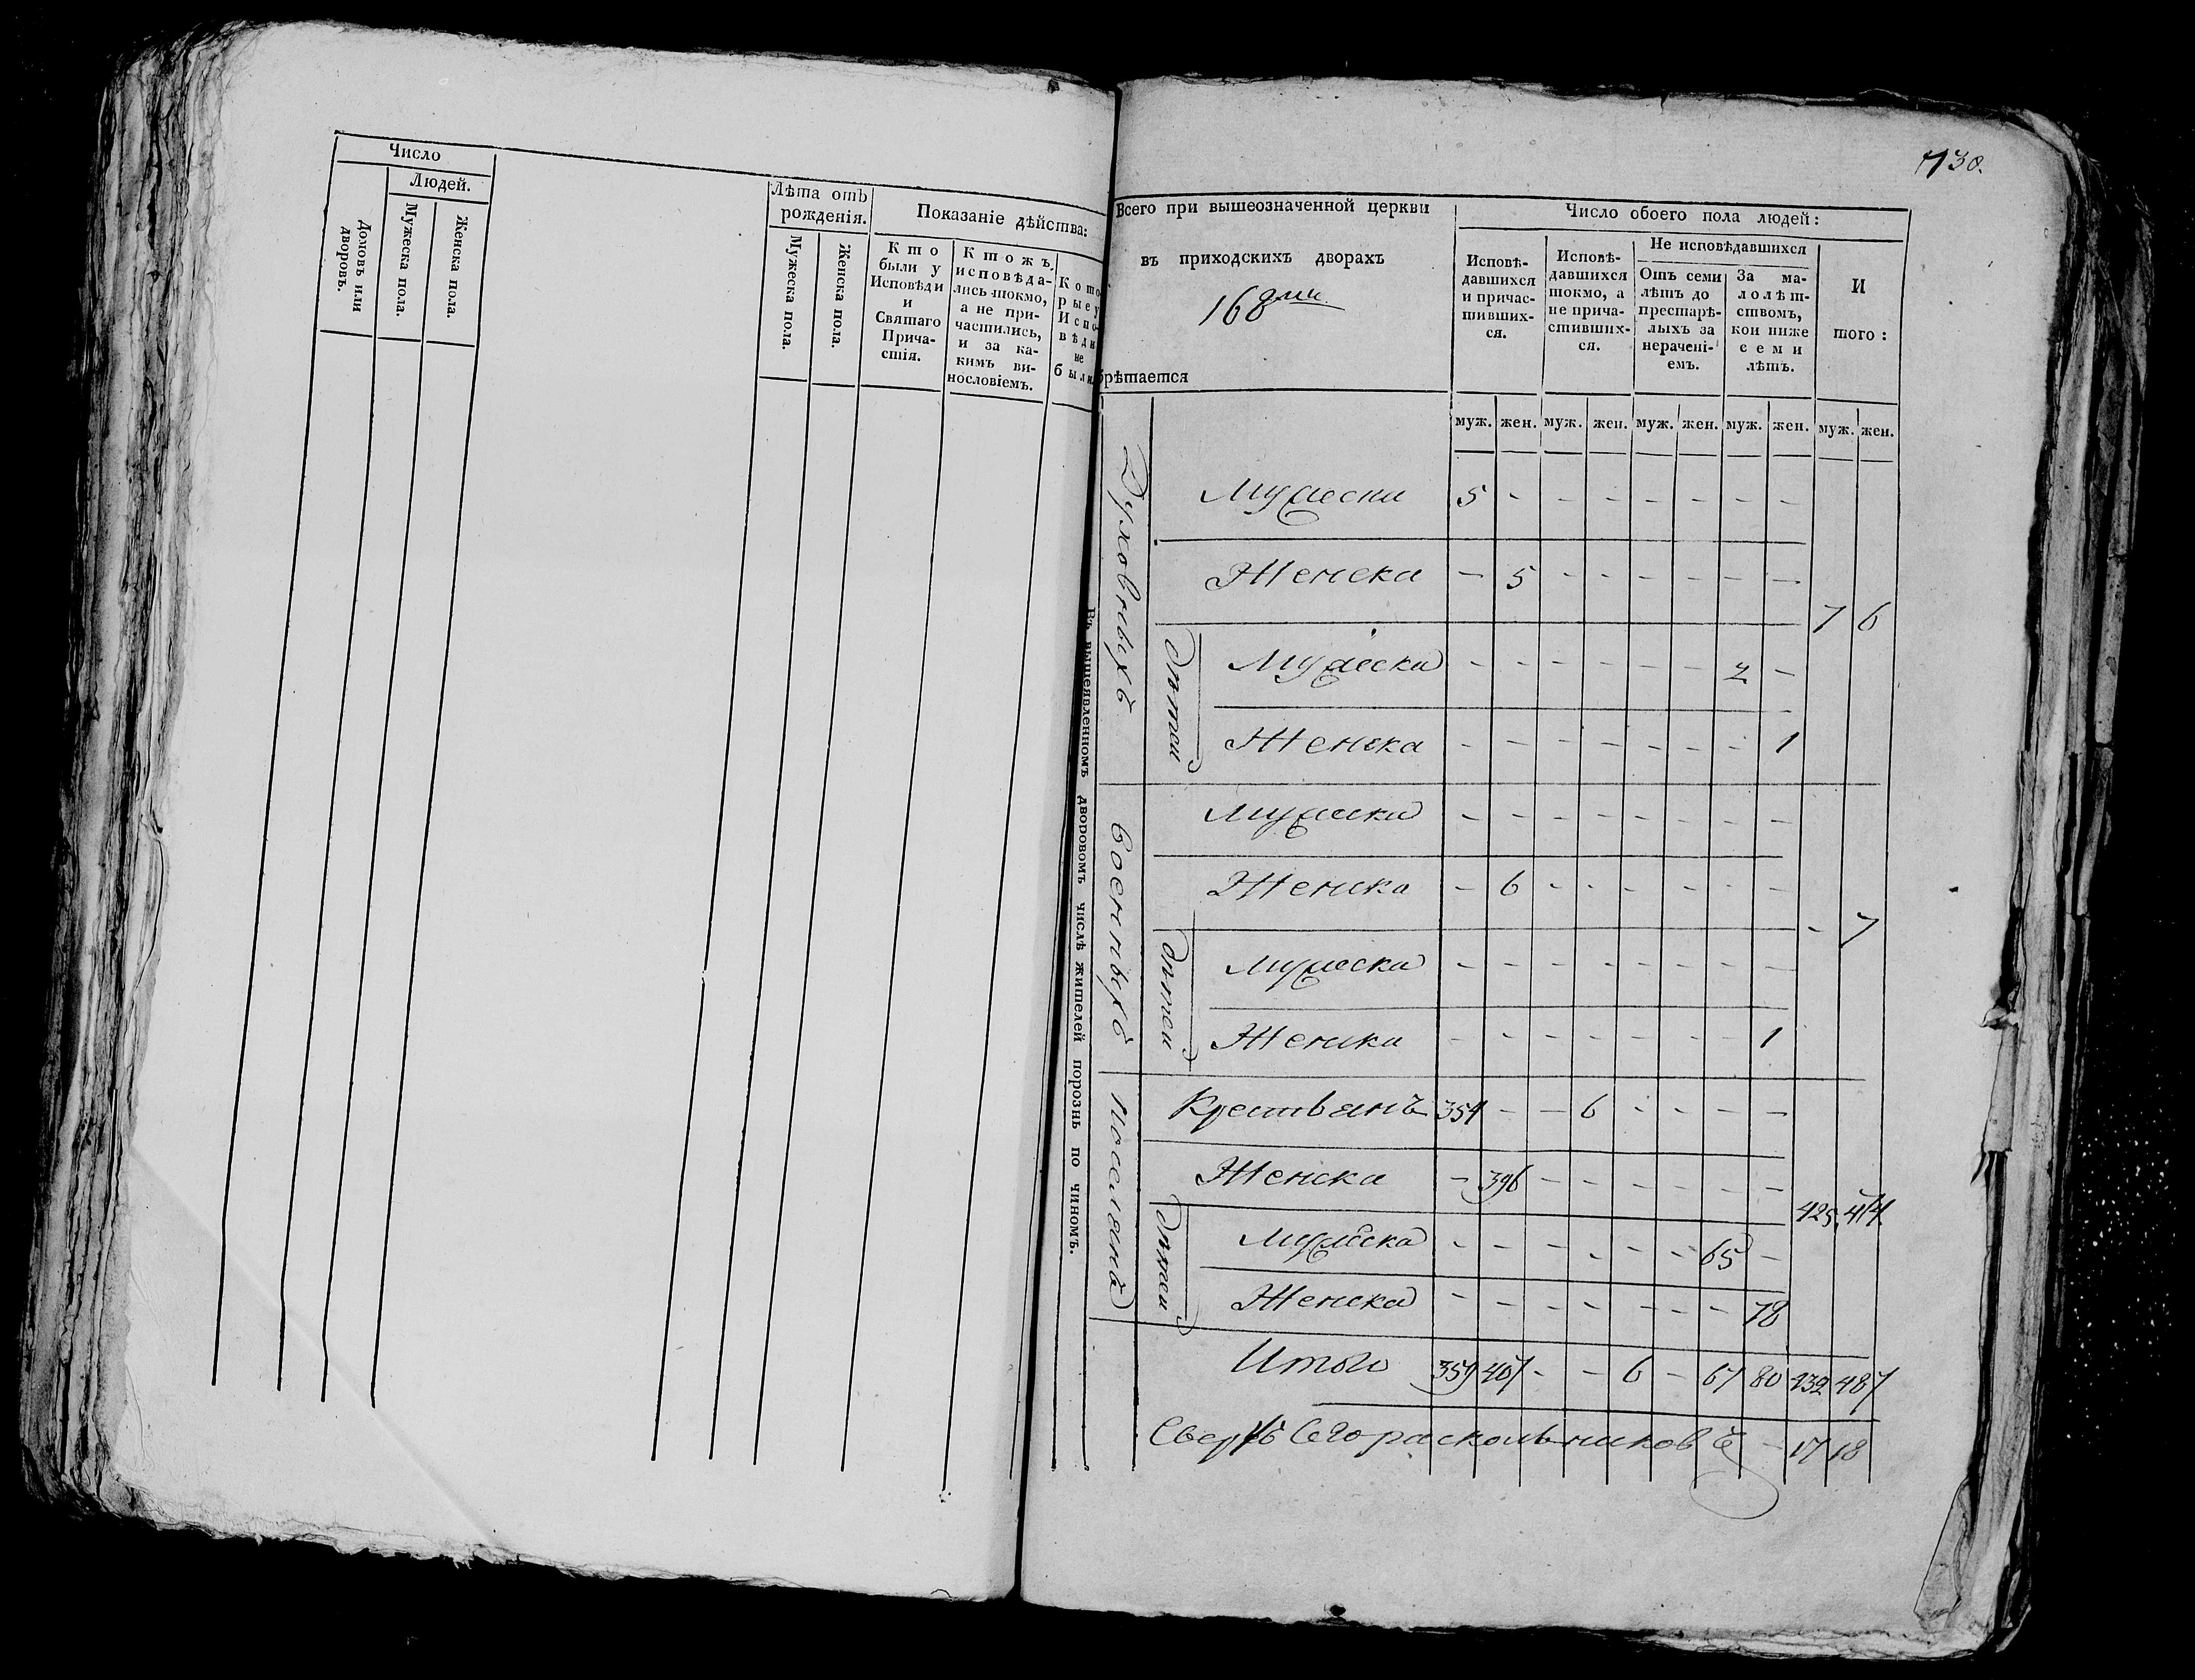 Число
Людей.
Домовъ или дворовъ.
Мужеска пола.
Женска пола.
Лѣта отъ
рожденія.
Мужеска пола.
Женска пола.
Показаніе дѣйства:
Кто
были у
Исповѣди
и
Святаго
Прича-
стія.
Ктожъ
исповѣда-
лись токмо,
а не при-
частились,
и за ка-
кимъ ви-
нословіемъ.
Кото-
рые у
Испо-
вѣди
не
были
730.
Всего при вышеозначенной церкви
въ приходскихъ дворахъ
168
брѣтается
Число обоего пола людей:
Исповѣ-
давшихся
и причас-
тивших-
ся.
Исповѣ-
давшихся
токмо, а
не прича-
стивших-
ся.
Не исповѣдавшихся
Отъ семи
лѣтъ до
престарѣ-
лыхъ за
нерачені-
емъ.
За ма-
лолѣт-
ствомъ,
кои ниже
семи
лѣтъ.
И
того:
муж. жен. муж. жен. муж. жен. муж. жен. муж. жен.
Въ вышеявленномъ дворовомъ числѣ жителей порознь по чиномъ.
Духовныхъ
Мужески 5 - - - - - - -
Женска - 5 - - - - - -
7 6
дѣтей
Мужеска - - - - - - 2 -
Женска - - - - - - - 1
военныхъ
Мужеска - - - - - - - -
Женска - 6 - - - - - -
- 7
дѣтей
Мужеска - - - - - - - -
Женска - - - - - - - 1
поселянъ
Крестьянъ 354 - - 6 - - - -
Женска - 396 - - - - - -
425 474
дѣтей
Мужеска - - - - - - 65 -
Женска - - - - - - - 78
Итого 359 407 - - 6 - 67 80 432 487
Сверхъ сего раскольниковъ - 17 18